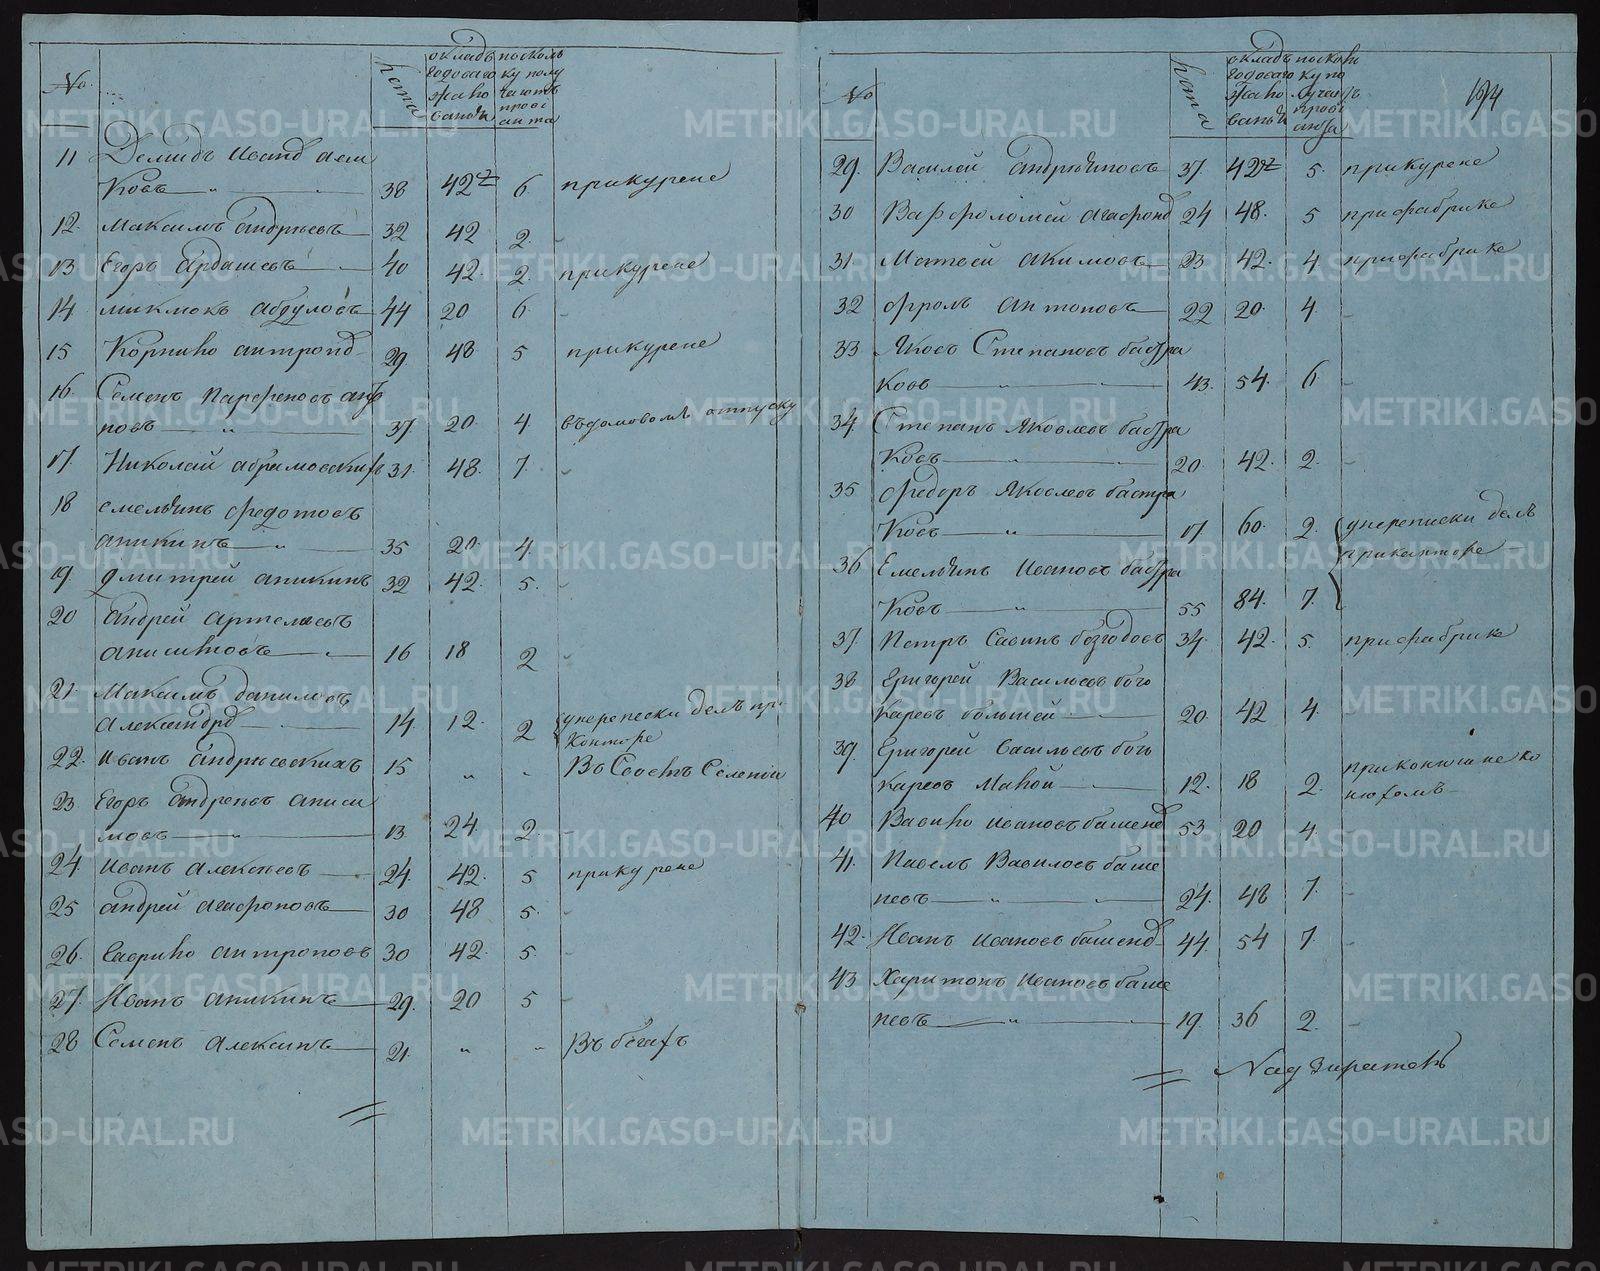 №
лета
окладъ
годоваго
жало
ванья
посколь
ку полу
чаютъ
прові
анта
11 Демидъ Иванов
ковъ 38 42 6 прикурене
12. Максимъ Андреевъ 32 42 2. -
13 Егоръ Ардашевъ 40 42. 2. прикурене
14 абдуловъ 44 20 6. -
15 Корнило антропов 29. 48 5 прикурене
16. Семенъ Парфеновъ анф
новъ 37 20. 4. въдомовомъ отпуску
17. Николай абрамовскихъ 31. 48. 7. -
18 емельянъ федотовъ
аникинъ 35 20. 4. -
19. дмитрей аникинъ 32 42. 5. -
20 андрей артемьевъ
анисимовъ 16 18 2
21. Максимъ даниловъ
Александров 14. 12. 2 упереписки делъ при
Конторе
22. иванъ андреевскихъ 15 " " Въ Селении
23 Егоръ андреевъ аниси
мовъ 13 24. 2. -
24. иванъ алексеевъ 24. 42. 5 прикурене
25 андрей агафоновъ 30 48 5. -
26. Гаврило антроповъ 30 42. 5. -
27. Иванъ аникинъ 29. 20 5 -
28 Семенъ алексинъ 21. " " Въ бегахъ
№
лета
окладъ
годоваго
жало
ванья
посколь
ку по
лучаютъ
прові
анта
194
29. Василей андреяновъ 37. 42 5. прикурене
30 Варфоломей агафонов 24 48. 5 прифабрике
31. Матвей акимовъ 23 42. 4 прифабрике
32 фролъ антоновъ 22 20. 4. -
33 Яковъ Степановъ бастра
ковъ 43. 54. 6. -
34. Степанъ Яковлевъ бастра
ковъ 20. 42. 2. -
35 федоръ Яковлевъ бастра
ковъ 17 60. 2. упереписки делъ
приконторе
36 Емельянъ Ивановъ бастра
ковъ 55 84. 7.
37. Петръ Савинъ безгодовъ 34. 42. 5. прифабрике
38 Григорей Васильевъ бого
каревъ большей 20. 42 4. -
39. Григорей васильевъ бого
каревъ Малой 12. 18 2. приконюшне ко
нюхомъ
40 Вавило ивановъ башен 53 20 4. -
41. Павелъ Вавиловъ баше
невъ 24. 48 7. -
42. Иванъ ивановъ башен 44. 54 7. -
43 Харитонъ ивановъ баше
невъ 19. 36 2. -
Надзиратель
METRIKI.GASO-URAL.RU